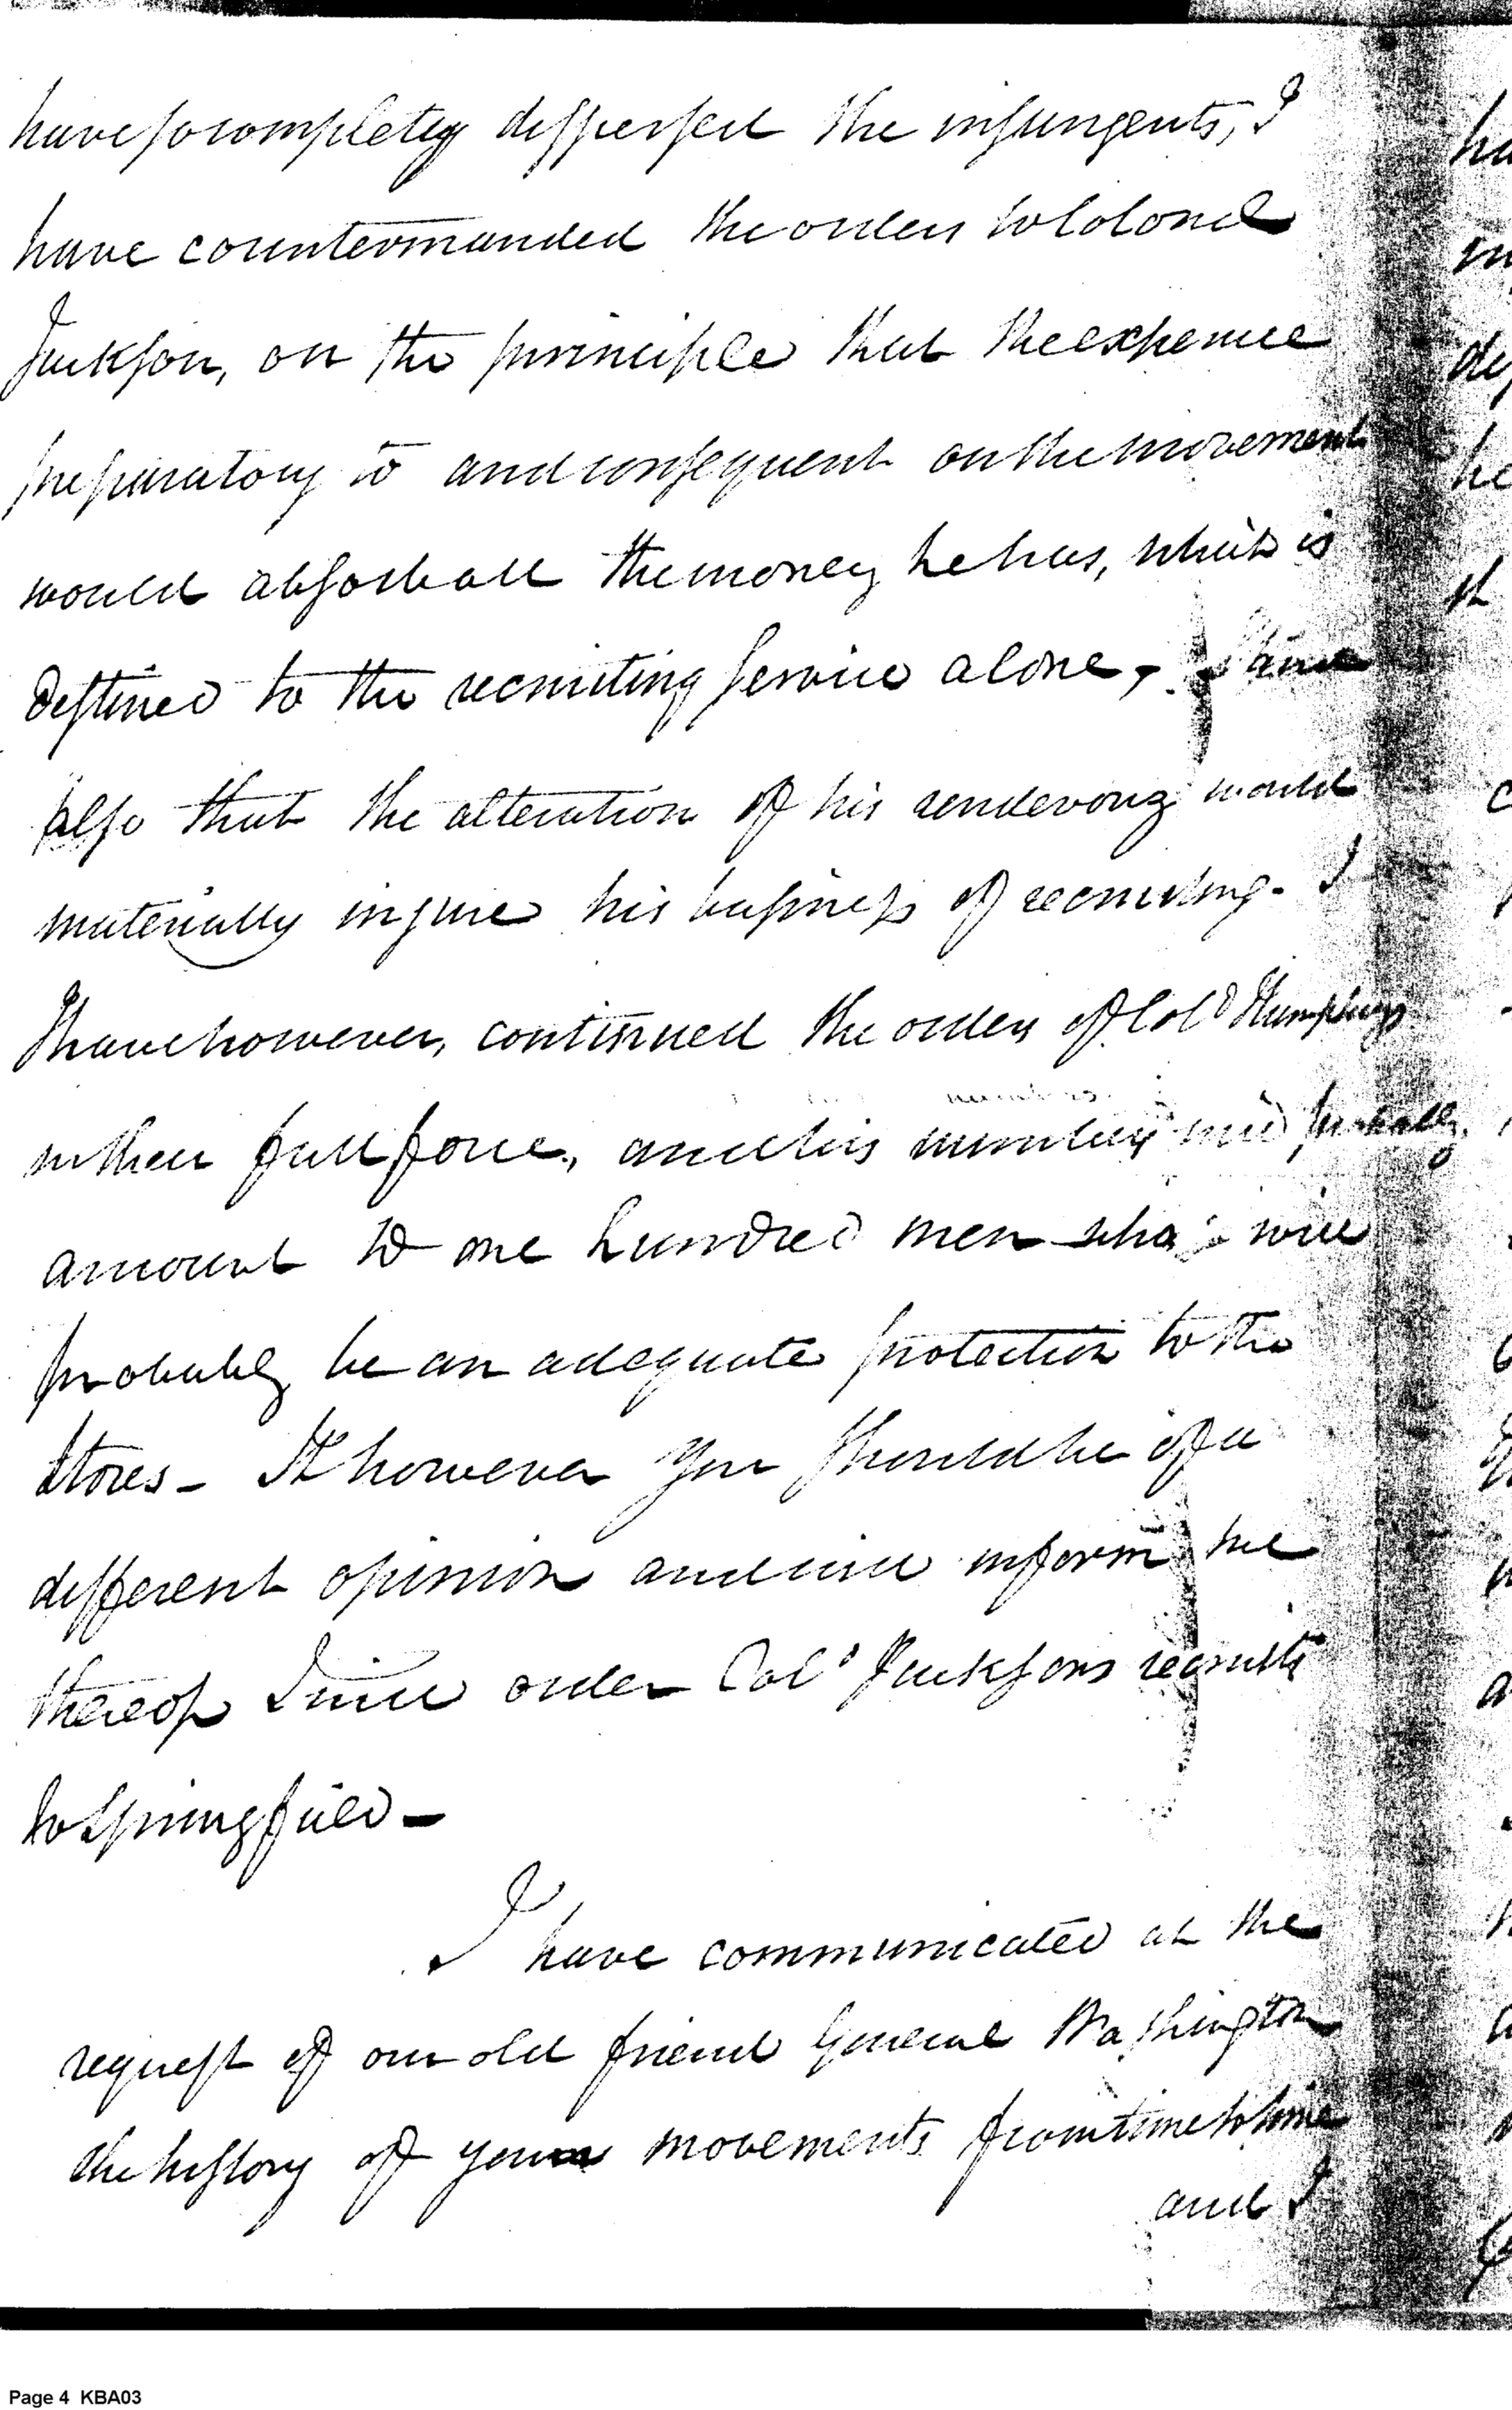 have so completely dispersed the insurgents, I
have countermanded the orders to Colonel
Jackson, on the principle that the expence
preparatory to and consequent on the movement
would absorb all the money he has, which is
destined to the recruiting service alone,
also that the alteration of his rendevouz would
materially injure his business of recruiting. I
I have however, continued the orders of Col.º Humphreys
in their full force, and his numbers probably
amount to one hundred men who will
probably be an adequate protection to the
Stores – If however you should be of a
different opinion and will inform me
thereof I will order Col.º Jacksons recruits
to Springfield –
I have communicated at the
request of our old friend General Washington
the history of your movements from time to time
and I
Page 4 KBA03